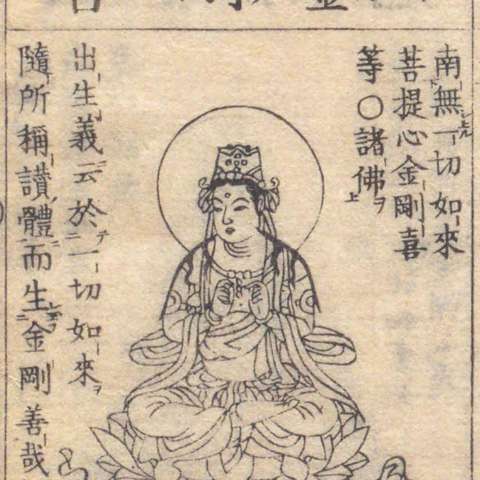 南無一切如來
菩提心金剛喜
等〇諸佛ヲ上
出生義云於テ一切如來ヲ
隨所稱讃體而生金剛善哉